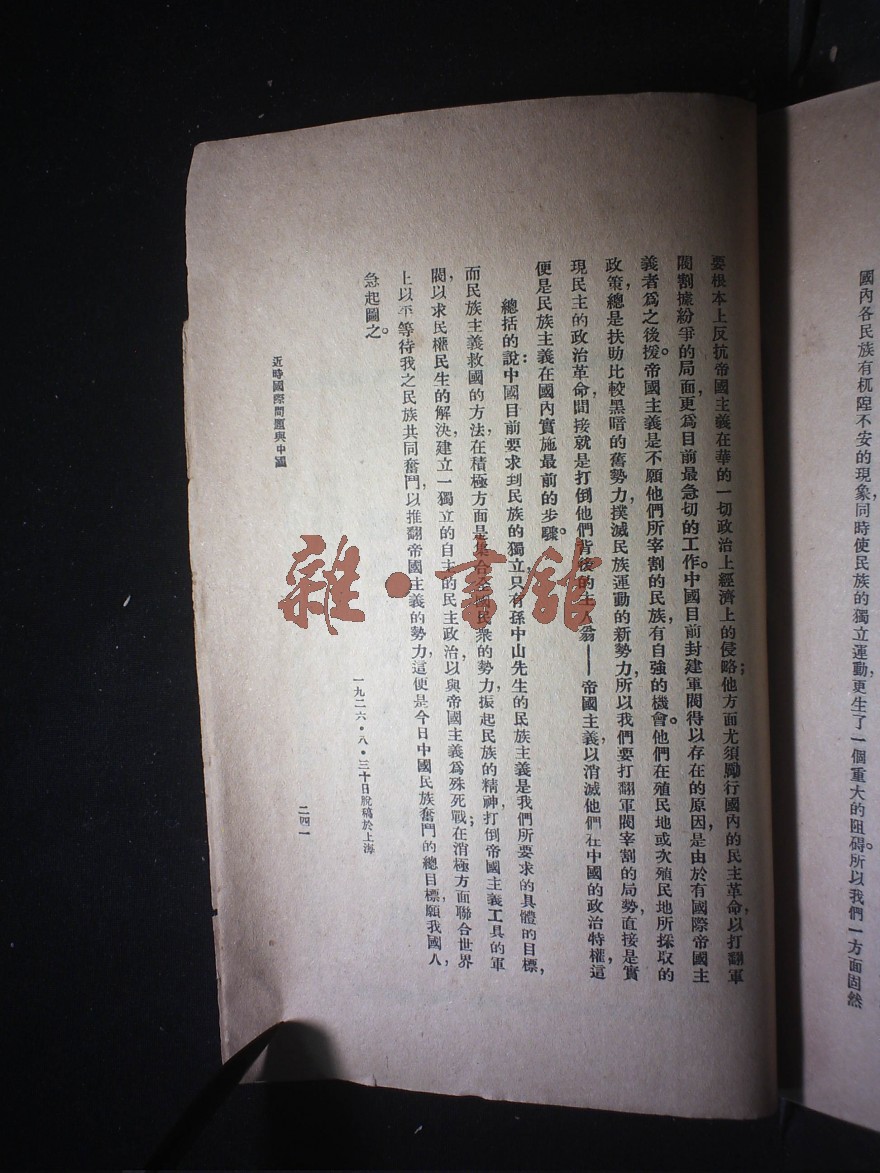 國內各民族有杌隉不安的現象，同時使民族的獨立運動更生了一個重大的阻碍。所以我們一方面固然
要根本上反抗帝國主義在華的一切政治上經濟上的侵略；他方面尤須勵行國內的民主革命，以打翻軍
閥割據紛爭的局面，更爲目前最急切的工作。中國目前封建軍閥得以存在的原因，是由於有國際帝國主
義者爲之後援。帝國主義是不願他們所宰割的民族，有自強的機會。他們在殖民地或次殖民地所採取的
政策，總是扶助比較黑暗的舊勢力，撲滅民族運動的新勢力，所以我們要打翻軍閥宰割的局勢，直接是實
現民主的政治革命，間接就是打倒他們背後的主人翁——帝國主義，以消滅他們在中國的政治特權，這
便是民族主義在國內實施最前的步驟。
總括的說：中國目前要求到民族的獨立，只有孫中山先生的民族主義是我們所要求的具體的目標，
而民族主義救國的方法，在積極方面是集合全國民衆的勢力，振起民族的精神，打倒帝國主義工具的軍
閥，以求民權民生的解決，建立一獨立的自主的民主政治，以與帝國主義爲殊死戰；在消極方面聯合世界
上以平等待我之民族共同奮鬥，以推翻帝國主義的勢力，這便是今日中國民族奮鬥的總目標，願我國人，
急起圖之。
一九二六・八・三十日脫稿於上海
近時國際問題與中國
二四一
雜・書館